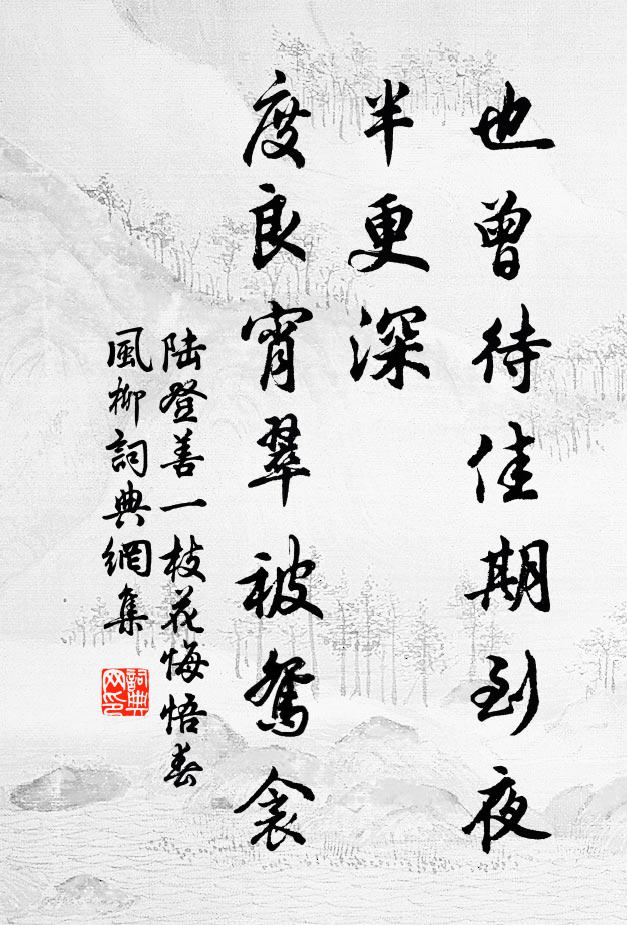 也曾待佳期到夜
半更深
度良宵翠被鴛衾
陆登善一枝花悔悟春
風柳詞典網集
詞典
网印